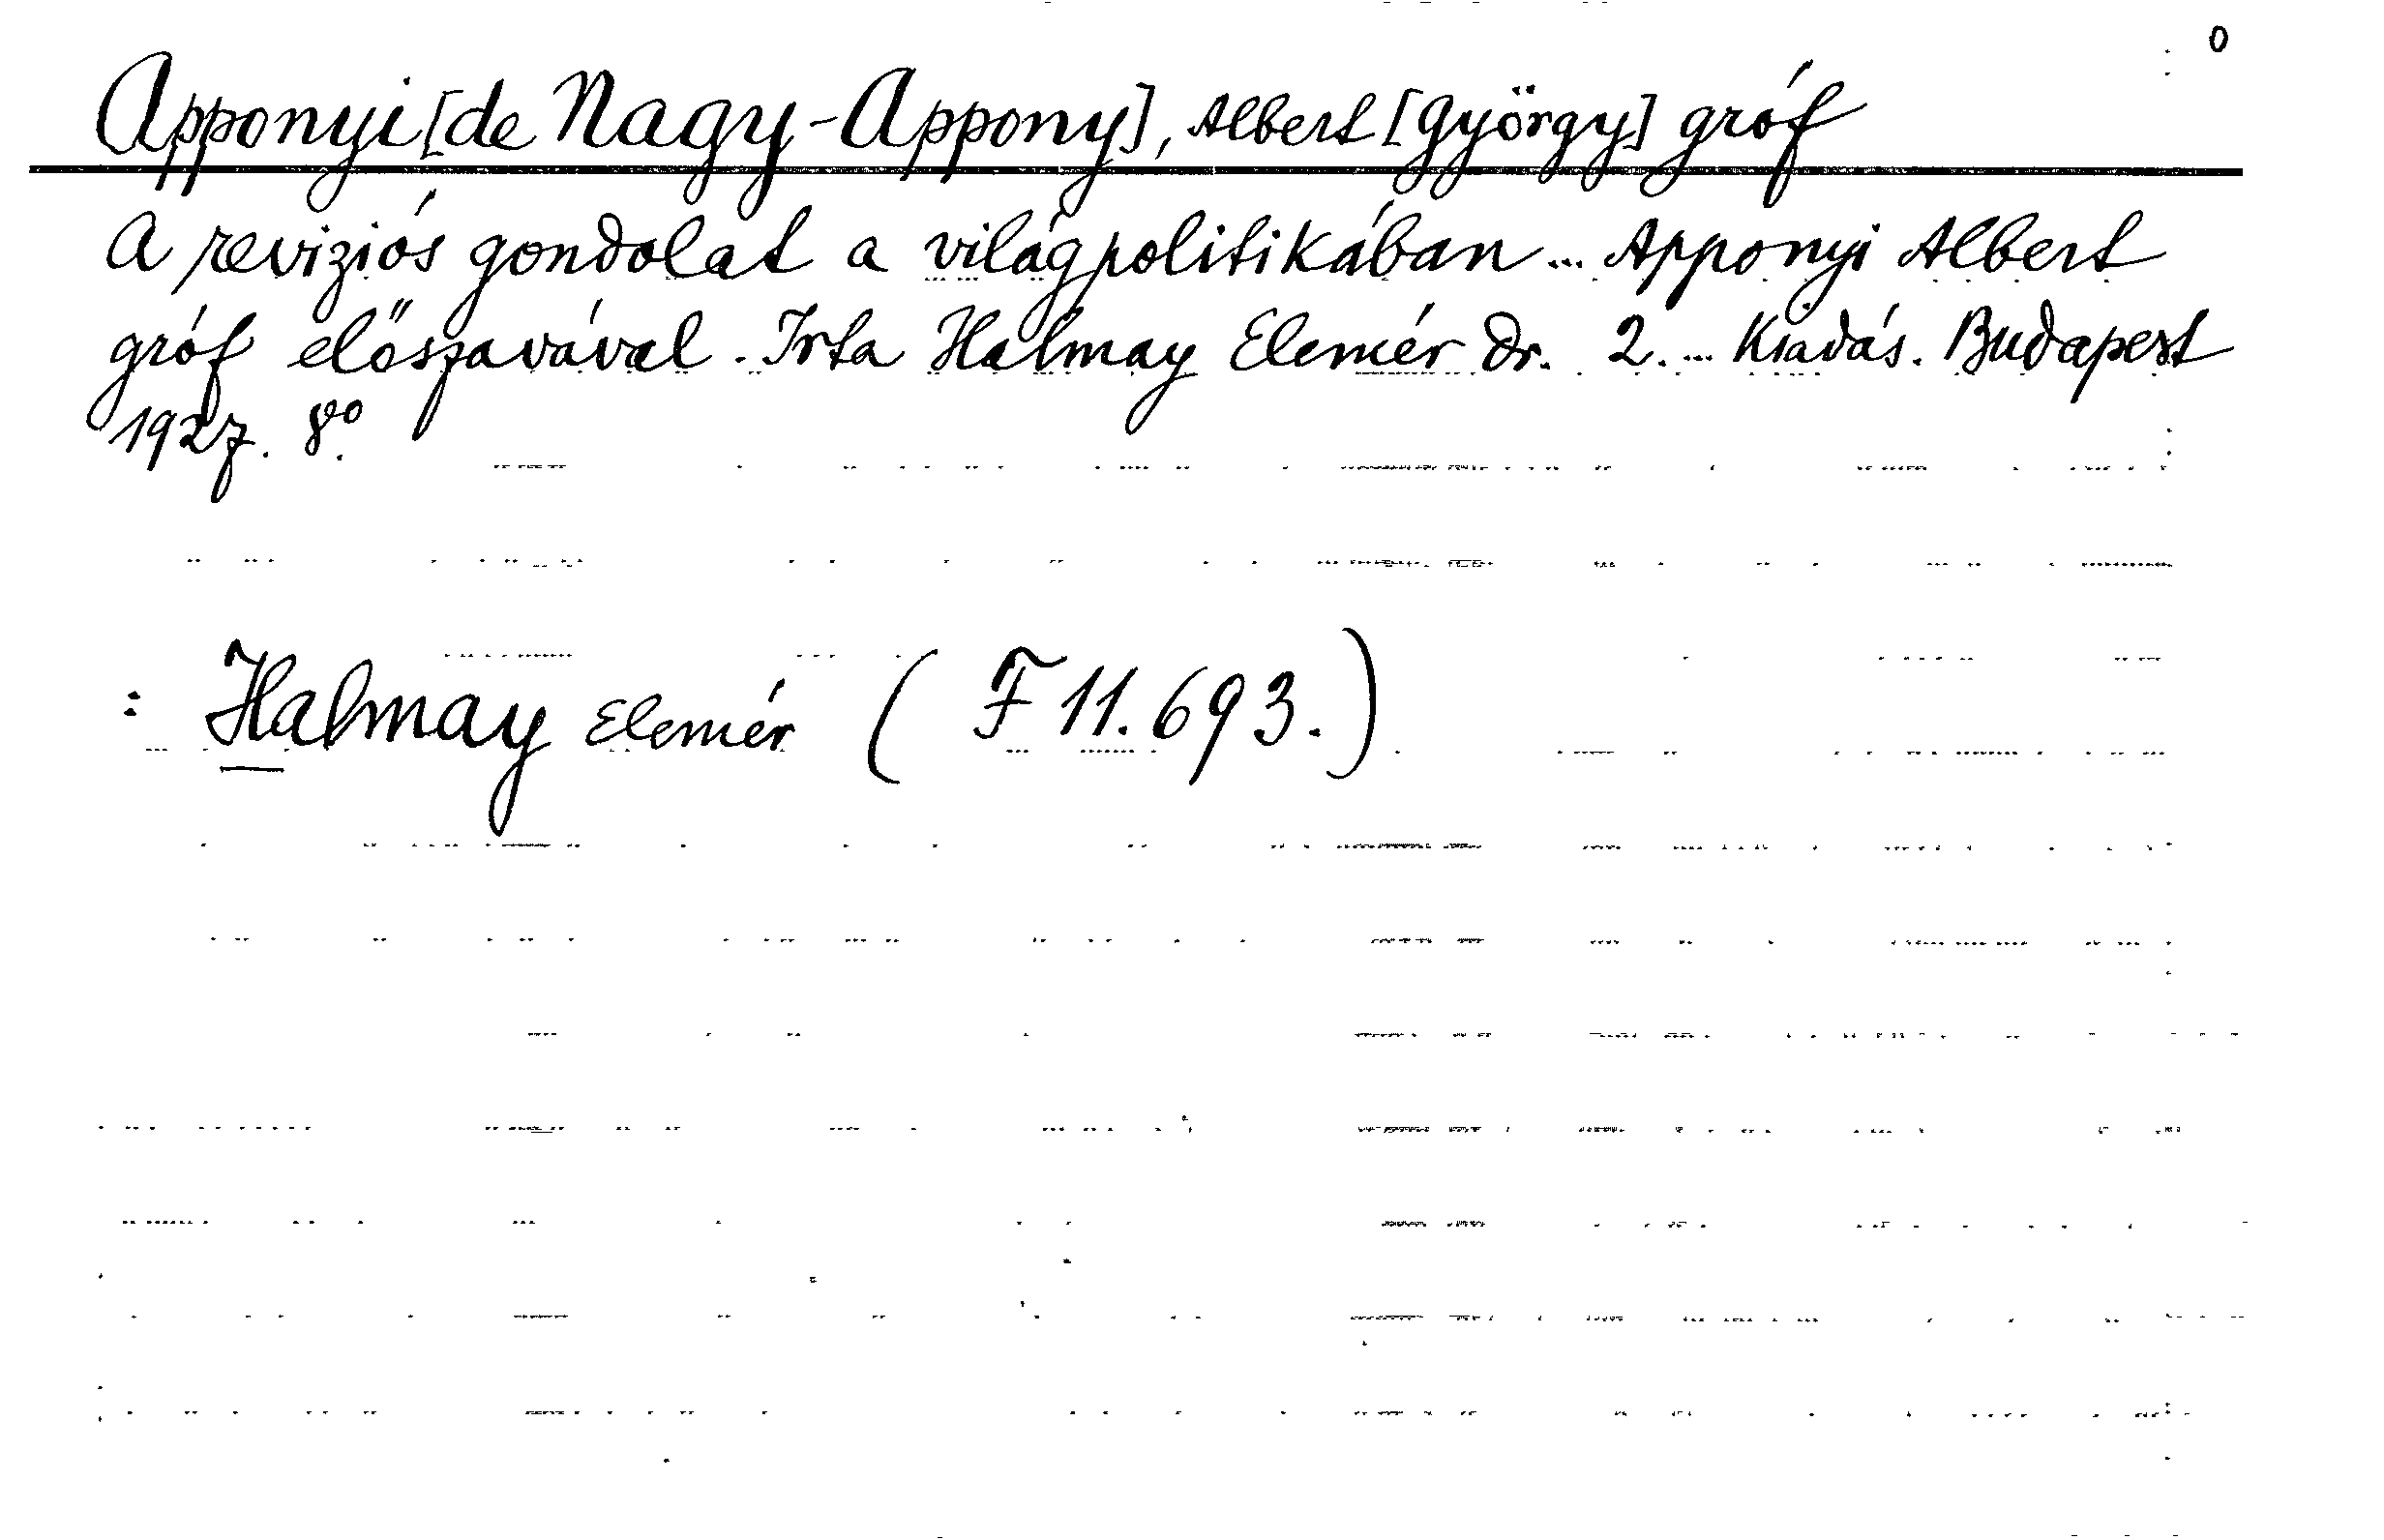 0
Apponyi [de Nagy-Appony], Albert [György] gróf
A reviziós gondolat a világpolitikában ... Apponyi Albert
gróf előszavával. Irta Halmay Elemér Dr. 2. ... Kiadás. Budapest
1927. 8º.
: Halmay Elemér ( F 11.693. )